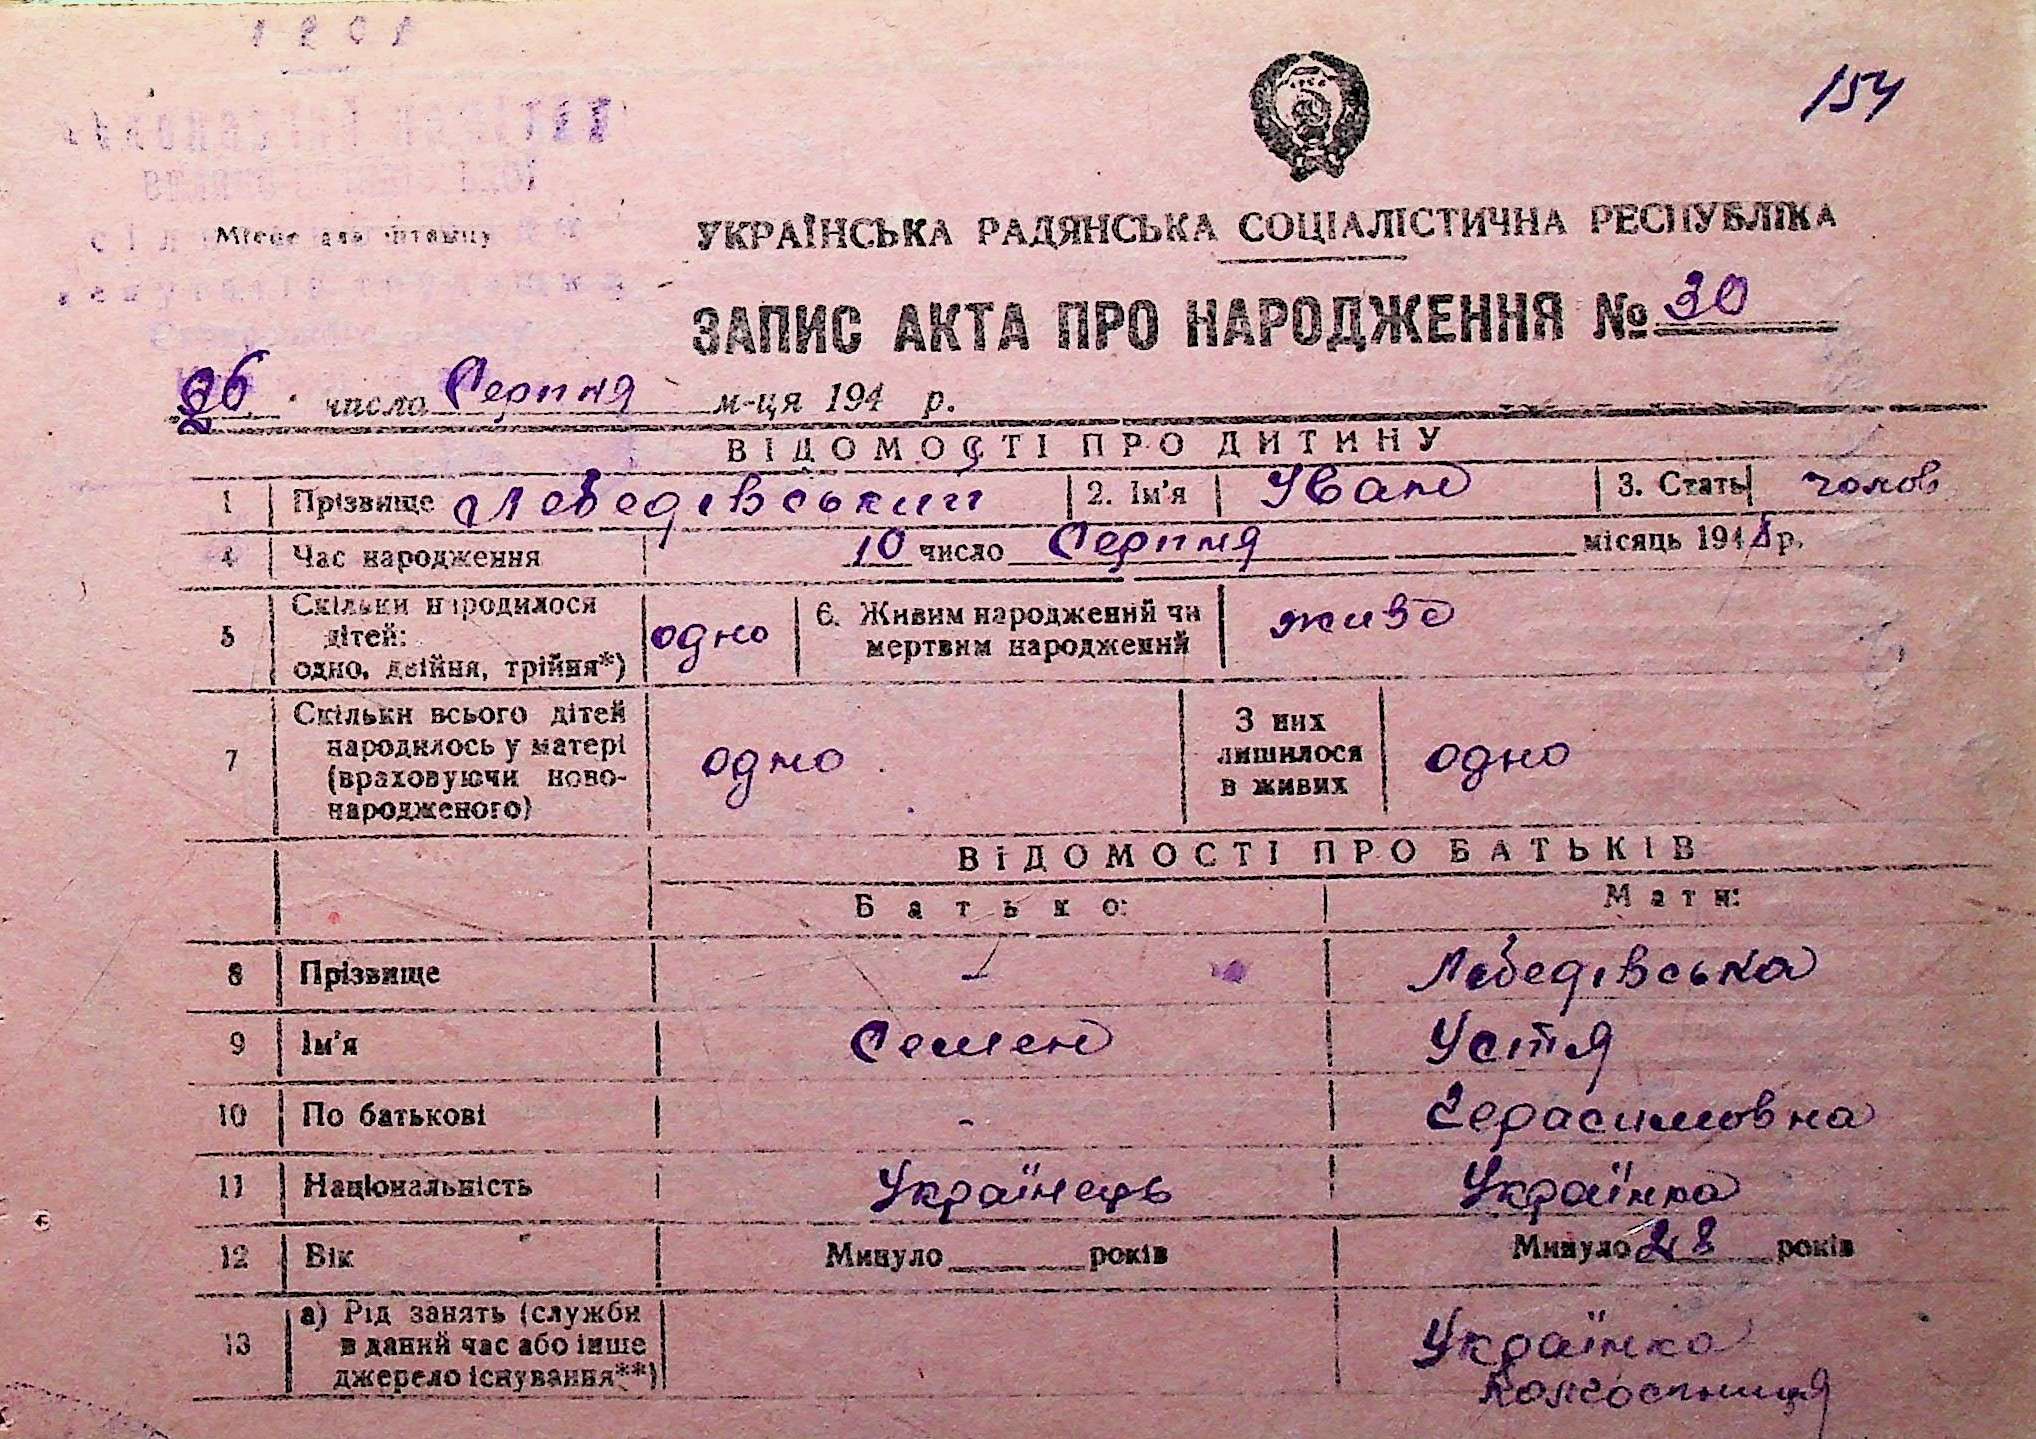 154
УКРАЇНСЬКА РАДЯНСЬКА СОЦІАЛІСТИЧНА РЕСПУБЛІКА
Місце для штампу
ЗАПИС АКТА ПРО НАРОДЖЕННЯ № 30
26 число Серпня м-ця 194 р.
ВІДОМОСТІ ПРО ДИТИНУ
1 Прізвище Лебедівський 2. Ім'я Іван 3. Стать чолов
4 Час народження 10 число Серпня місяць 1948 р.
5 Скільки народилося дітей: одно, двійня, трійня*) одно 6. Живим народжений чи мертвим народжений живо
7 Скільки всього дітей народилось у матері (враховуючи новонародженого) одно З них лишилося в живих одно
ВІДОМОСТІ ПРО БАТЬКІВ
Батько: Мати:
8 Прізвище - Лебедівська
9 Ім'я Семен Устя
10 По батькові - Герасимовна
11 Національність Українець Українка
12 Вік Минуло ______ років Минуло 28 років
13 а) Рід занять (служби в даний час або інше джерело існування**) Українка
Колгоспниця